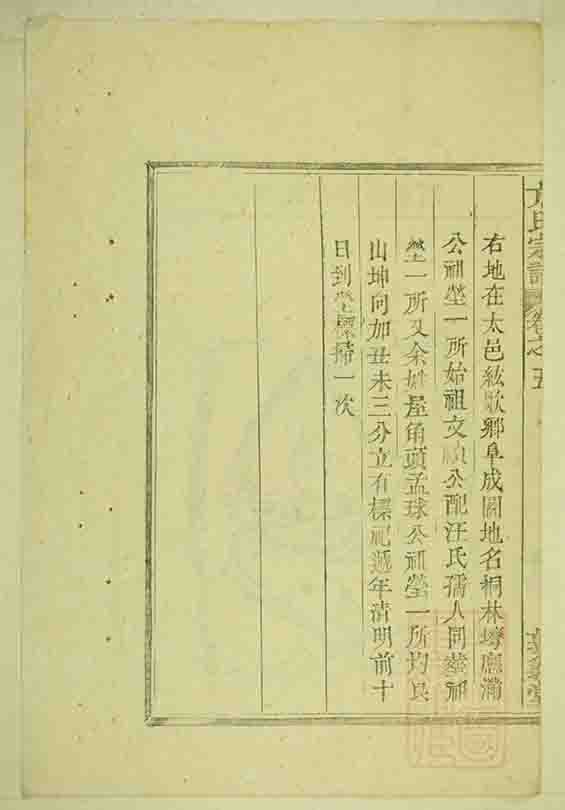 氏宗譜 卷之五
右地在太邑絃歌鄉阜成圖地名桐林
公祖塋一所始祖文公配汪氏孺人同塋祖
塋一所又余姓屋角頭孟球公祖塋一所均艮
山坤向加丑未三分立有標祀遞年清明前十
日到塋標掃一次